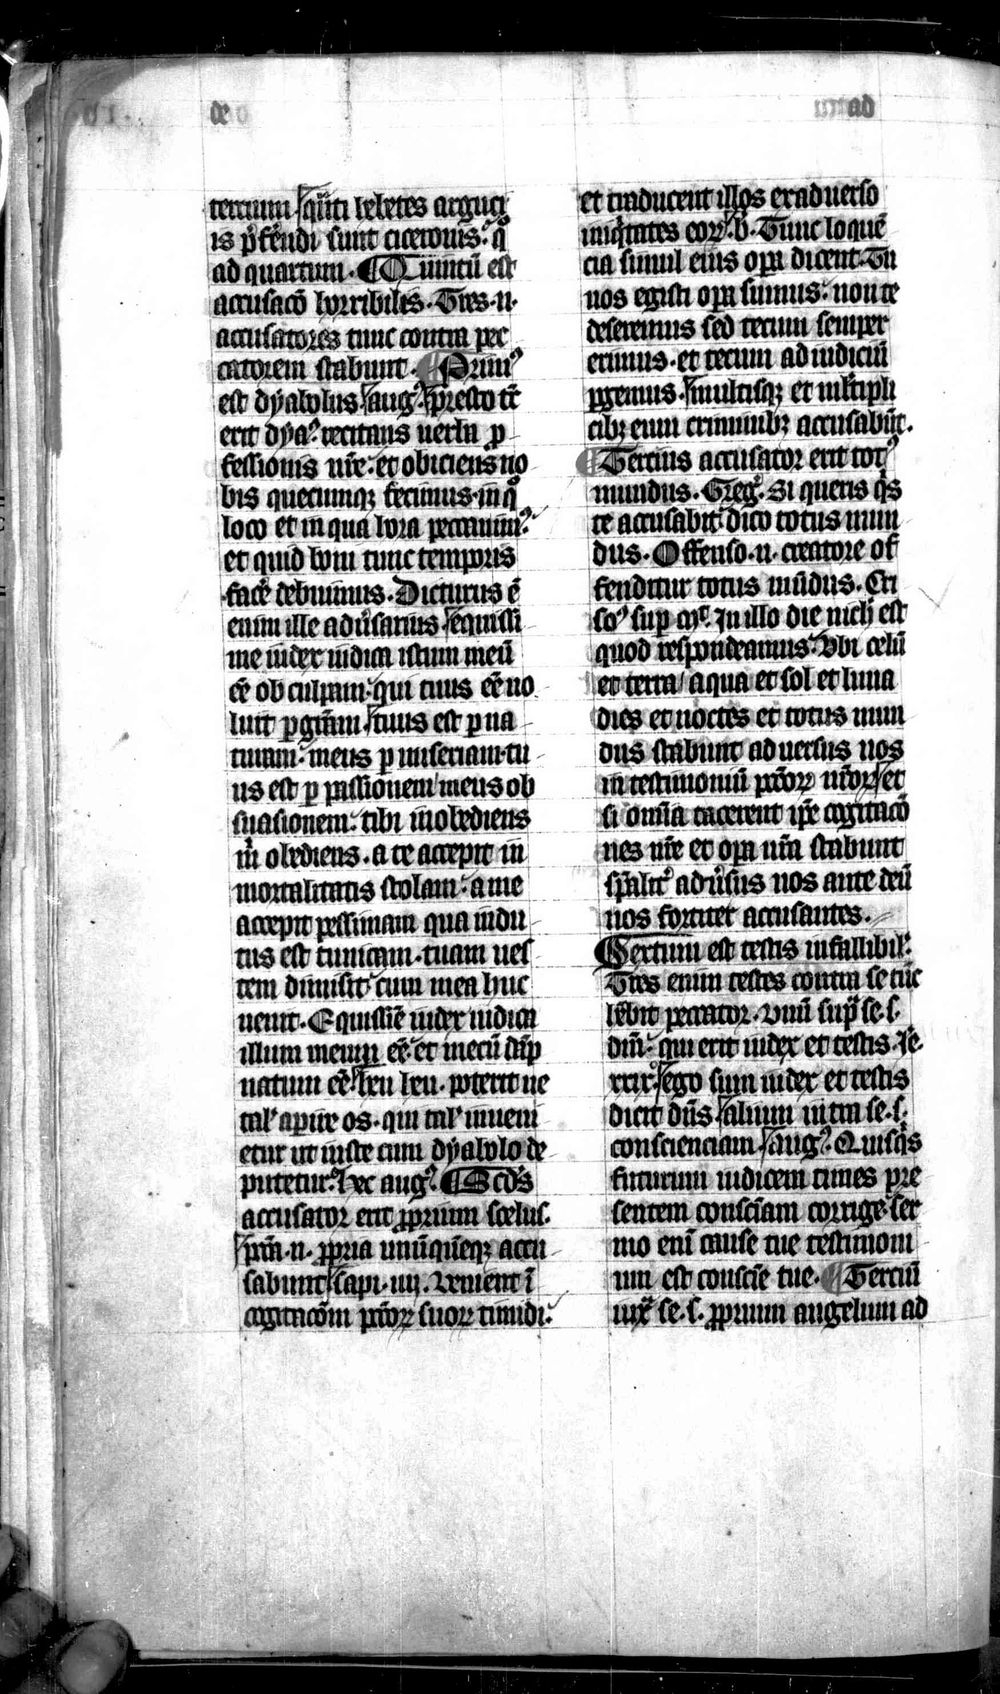 de
ad
tercium quanti hebetes arguci
is p̄ferendi sunt ciceronis. qo
ad quartum. Quintū est
accusacō horribilis. Tres .n.
accusatores tunc contra pec
catorem stabunt. Primꝰ
est dyabolus aug. presto tc̄
erit dyaꝰ recitans uerba ꝓ
fessionis nr̄e. et obiciens no
bis quecunqꝫ fecimus. in qo
loco et in qua hora peccauimꝰ.
et quid boni tunc temporis
facē debuimus. Dicturus ē
enim ille aduʼsarius equissi
me iudex iudica istum meū
eē ob culpam. qui tuus eē no
luit ꝑ grām tuus est ꝑ na
turam. meus ꝑ miseriam. tu
us est ꝑ passionem meus ob
suasionem. tibi inobediens
mͥ obediens. a te accepit in
mortalitatis stolam. a me
accepit pessimam qua indu
tus est tunicam. tuam ues
tem dimisit cum mea huc
uenit. Equissīe iudex iudica
illum meum eē. et mecū dāp
natum eē. heu heu. poterit ne
talʼ apire os. qui talʼ inueni
etur ut iuste cum dyabolo de
putetur. hec augꝰ. Scds
accusator erit ꝓprium scelus.
pctā .n. ꝓpria unūquēqꝫ accu
sabunt sapi. iiij. Venient ī
cogitacōm pctōꝝ suoꝝ timidi.
et traducent illos exaduerso
iniqͥtates eoꝝ. b̄. Tunc loquē
cia simul eius opa dicent. Tu
nos egisti opa sumus. non te
deseremus sed tecum semper
erimus. et tecum ad iudiciū
ꝑgemus. multisqꝫ et mltipli
cibꝫ eum criminibꝫ accusabūt.
Tercius accusator erit totꝰ
mundus. Greg. Si queris qͥs
te accusabit. dico totus mun
dus. Offenso .n. creatore of
fenditur totus mūdus. Cri
soꝰ sup mt. In illo die nichil est
quod respondeamus. Vbi celū
et terra aqua et sol et luna
dies et noctes et totus mun
dus stabunt ad uersus nos
in testimoniū pctōꝝ nr̄oꝝ et
si omīa tacerent ip̄e cogitacō
nes nr̄e et opa nr̄a stabunt
sp̄alitͬ aduʼsus nos ante deū
nos fortiter accusantes.
Tercium est testis infallibilʼ.
Tres enim testes contra se tūc
hēbit peccator. vnū supͣ se .s.
dm̄. qui erit iudex et testis. Jē.
xxix. ego sum iudex et testis
dicit dn̄s. alium intra se .s.
conscienciam augꝰ. Quisqͥs
futurum iudicem times pre
sentem consciam corrige. ser
mo enī cause tue testimoni
um est conscie tue. Terciū
iuxͣ se .s. ꝓprium angelum ad